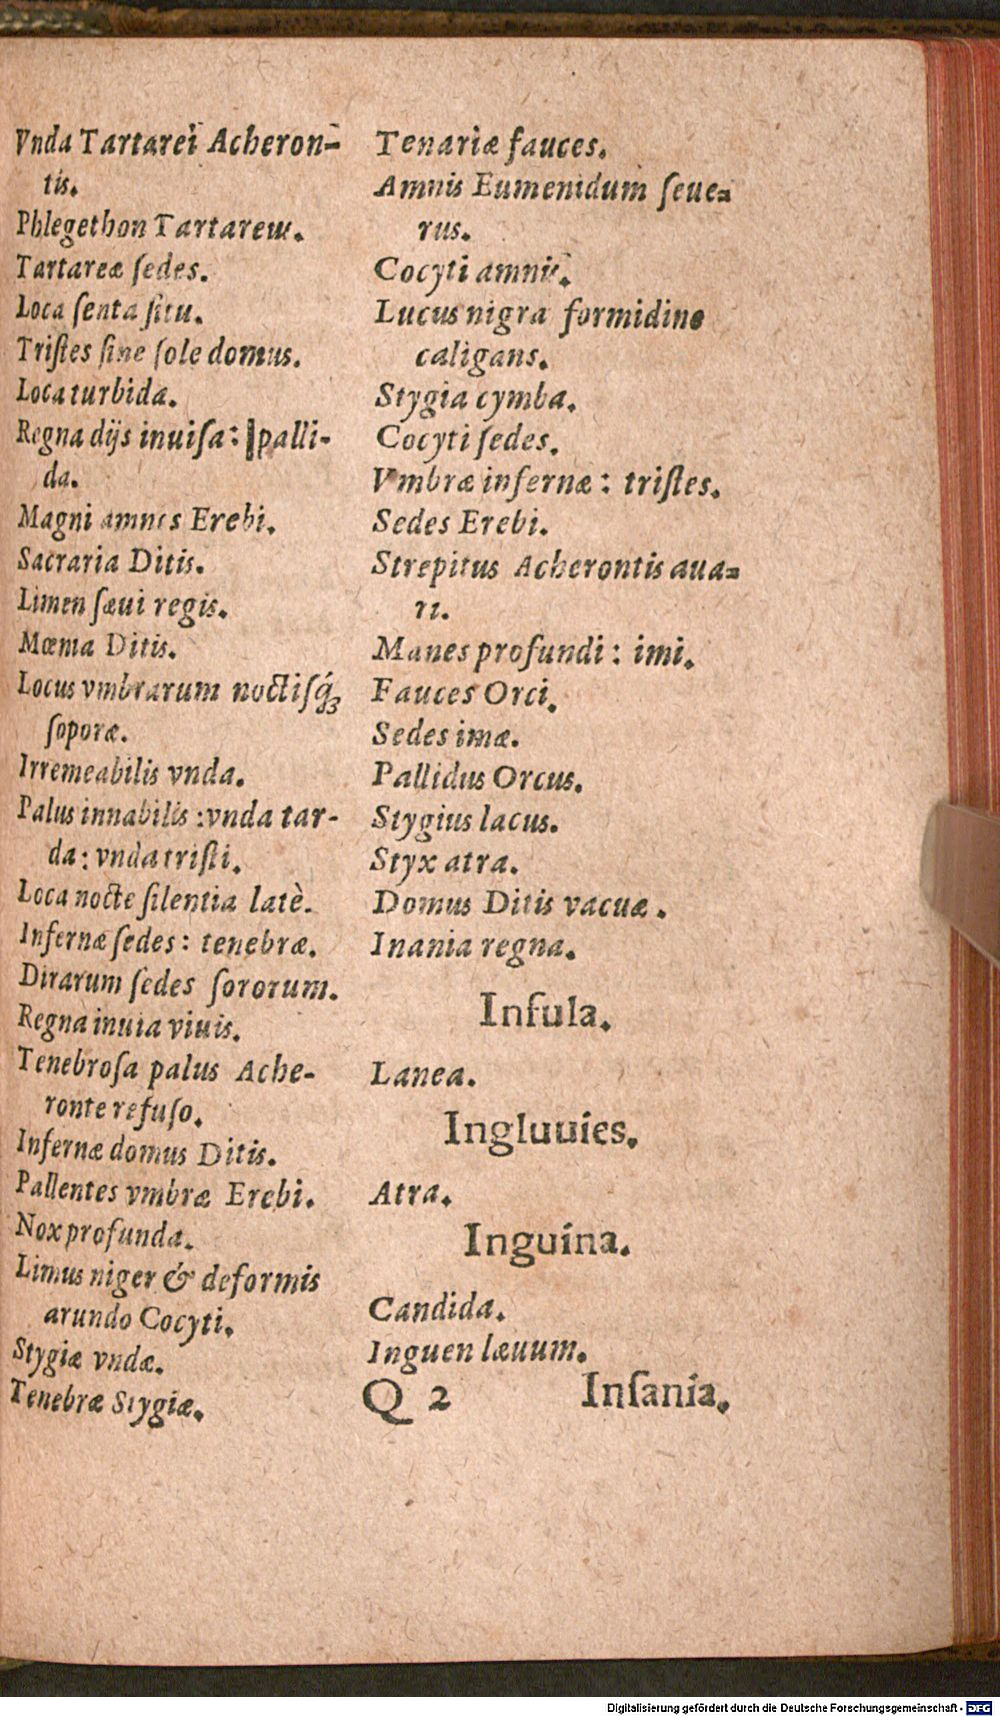 Vnda Tartarei Acheron-
tis.
Phlegethon Tartareus.
Tartareæ ſedes.
Loca ſenta ſitu.
Triſtes ſine ſole domus.
Loca turbida.
Regna dijs inuiſa: palli-
da.
Magni amnes Erebi.
Sacraria Ditis.
Limen ſæui regis.
Mœnia Ditis.
Locus vmbrarum noctiſq́ꝫ
ſoporæ.
Irremeabilis vnda.
Palus innabilis: vnda tar-
da: vnda triſti.
Loca nocte ſilentia latè.
Infernæ ſedes: tenebræ.
Dirarum ſedes ſororum.
Regna inuia viuis.
Tenebroſa palus Ache-
ronte refuſo.
Infernæ domus Ditis.
Pallentes vmbræ Erebi.
Nox profunda.
Limus niger & deformis
arundo Cocyti.
Stygiæ vndæ.
Tenebræ Stygiæ.
Tenariæ fauces.
Amnis Eumenidum ſeue-
rus.
Cocyti amnis.
Lucus nigra formidine
caligans.
Stygia cymba.
Cocyti ſedes.
Vmbræ infernæ: triſtes.
Sedes Erebi.
Strepitus Acherontis aua-
ri.
Manes profundi: imi.
Fauces Orci.
Sedes imæ.
Pallidus Orcus.
Stygius lacus.
Styx atra.
Domus Ditis vacuæ.
Inania regna.
Inſula.
Lanea.
Ingluuies.
Atra.
Inguina.
Candida.
Inguen læuum.
Q 2 Inſania.
Digitalisierung gefördert durch die Deutsche Forschungsgemeinschaft - DFG